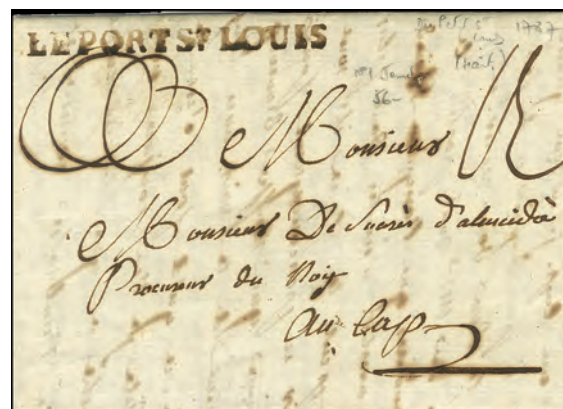 LE PORT St LOUIS
1787
Monsieur
Monsieur De Suarès d'almeida
Procureur du Roy
au Cap